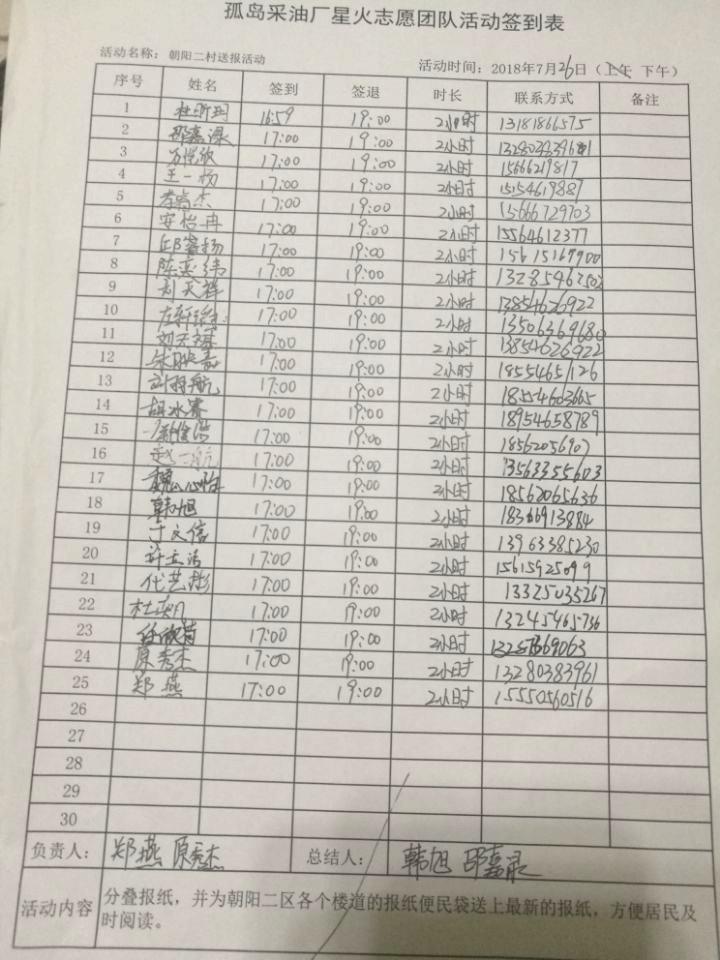 孤岛采油厂星火志愿团队活动签到表
活动名称：朝阳二村送报活动 活动时间：2018年7月26日（上午 下午）
序号 姓名 签到 签退 时长 联系方式 备注
1 杜昕珂 16:59 19:00 2小时 13181866575
2 邵嘉渌 17:00 19:00 2小时
3 万悦欣 17:00 19:00 2小时 15666219817
4 王一杨 17:00 19:00 2小时 15154619887
5 李尚杰 17:00 19:00 2小时 15666729703
6 安怡冉 17:00 19:00 2小时 15564612377
7 邱睿扬 17:00 19:00 2小时 15615167900
8 陈奕纬 17:00 19:00 2小时
9 刘天祥 17:00 19:00 2小时 13854626922
10 17:00 19:00 2小时 13506369680
11 刘天禄 17:00 19:00 2小时 13854626922
12 17:00 19:00 2小时 18554657126
13 17:00 19:00 2小时 18554603665
14 胡冰赛 17:00 19:00 2小时 18954658789
15 17:00 19:00 2小时 18562056907
16 赵一航 17:00 19:00 2小时 13563355603
17 魏心怡 17:00 19:00 2小时 18562065636
18 韩旭 17:00 19:00 2小时
19 于文信 17:00 19:00 2小时 13963385230
20 许立洁 17:00 19:00 2小时 15615925099
21 代艺彤 17:00 19:00 2小时 13325035267
22 17:00 19:00 2小时 13245465736
23 任欣荷 17:00 19:00 2小时
24 原秀杰 17:00 19:00 2小时 13280383961
25 郑燕 17:00 19:00 2小时 15550560516
26
27
28
29
30
负责人： 郑燕 原秀杰 总结人： 韩旭 邵嘉录
活动内容 分叠报纸，并为朝阳二区各个楼道的报纸便民袋送上最新的报纸，方便居民及
时阅读。